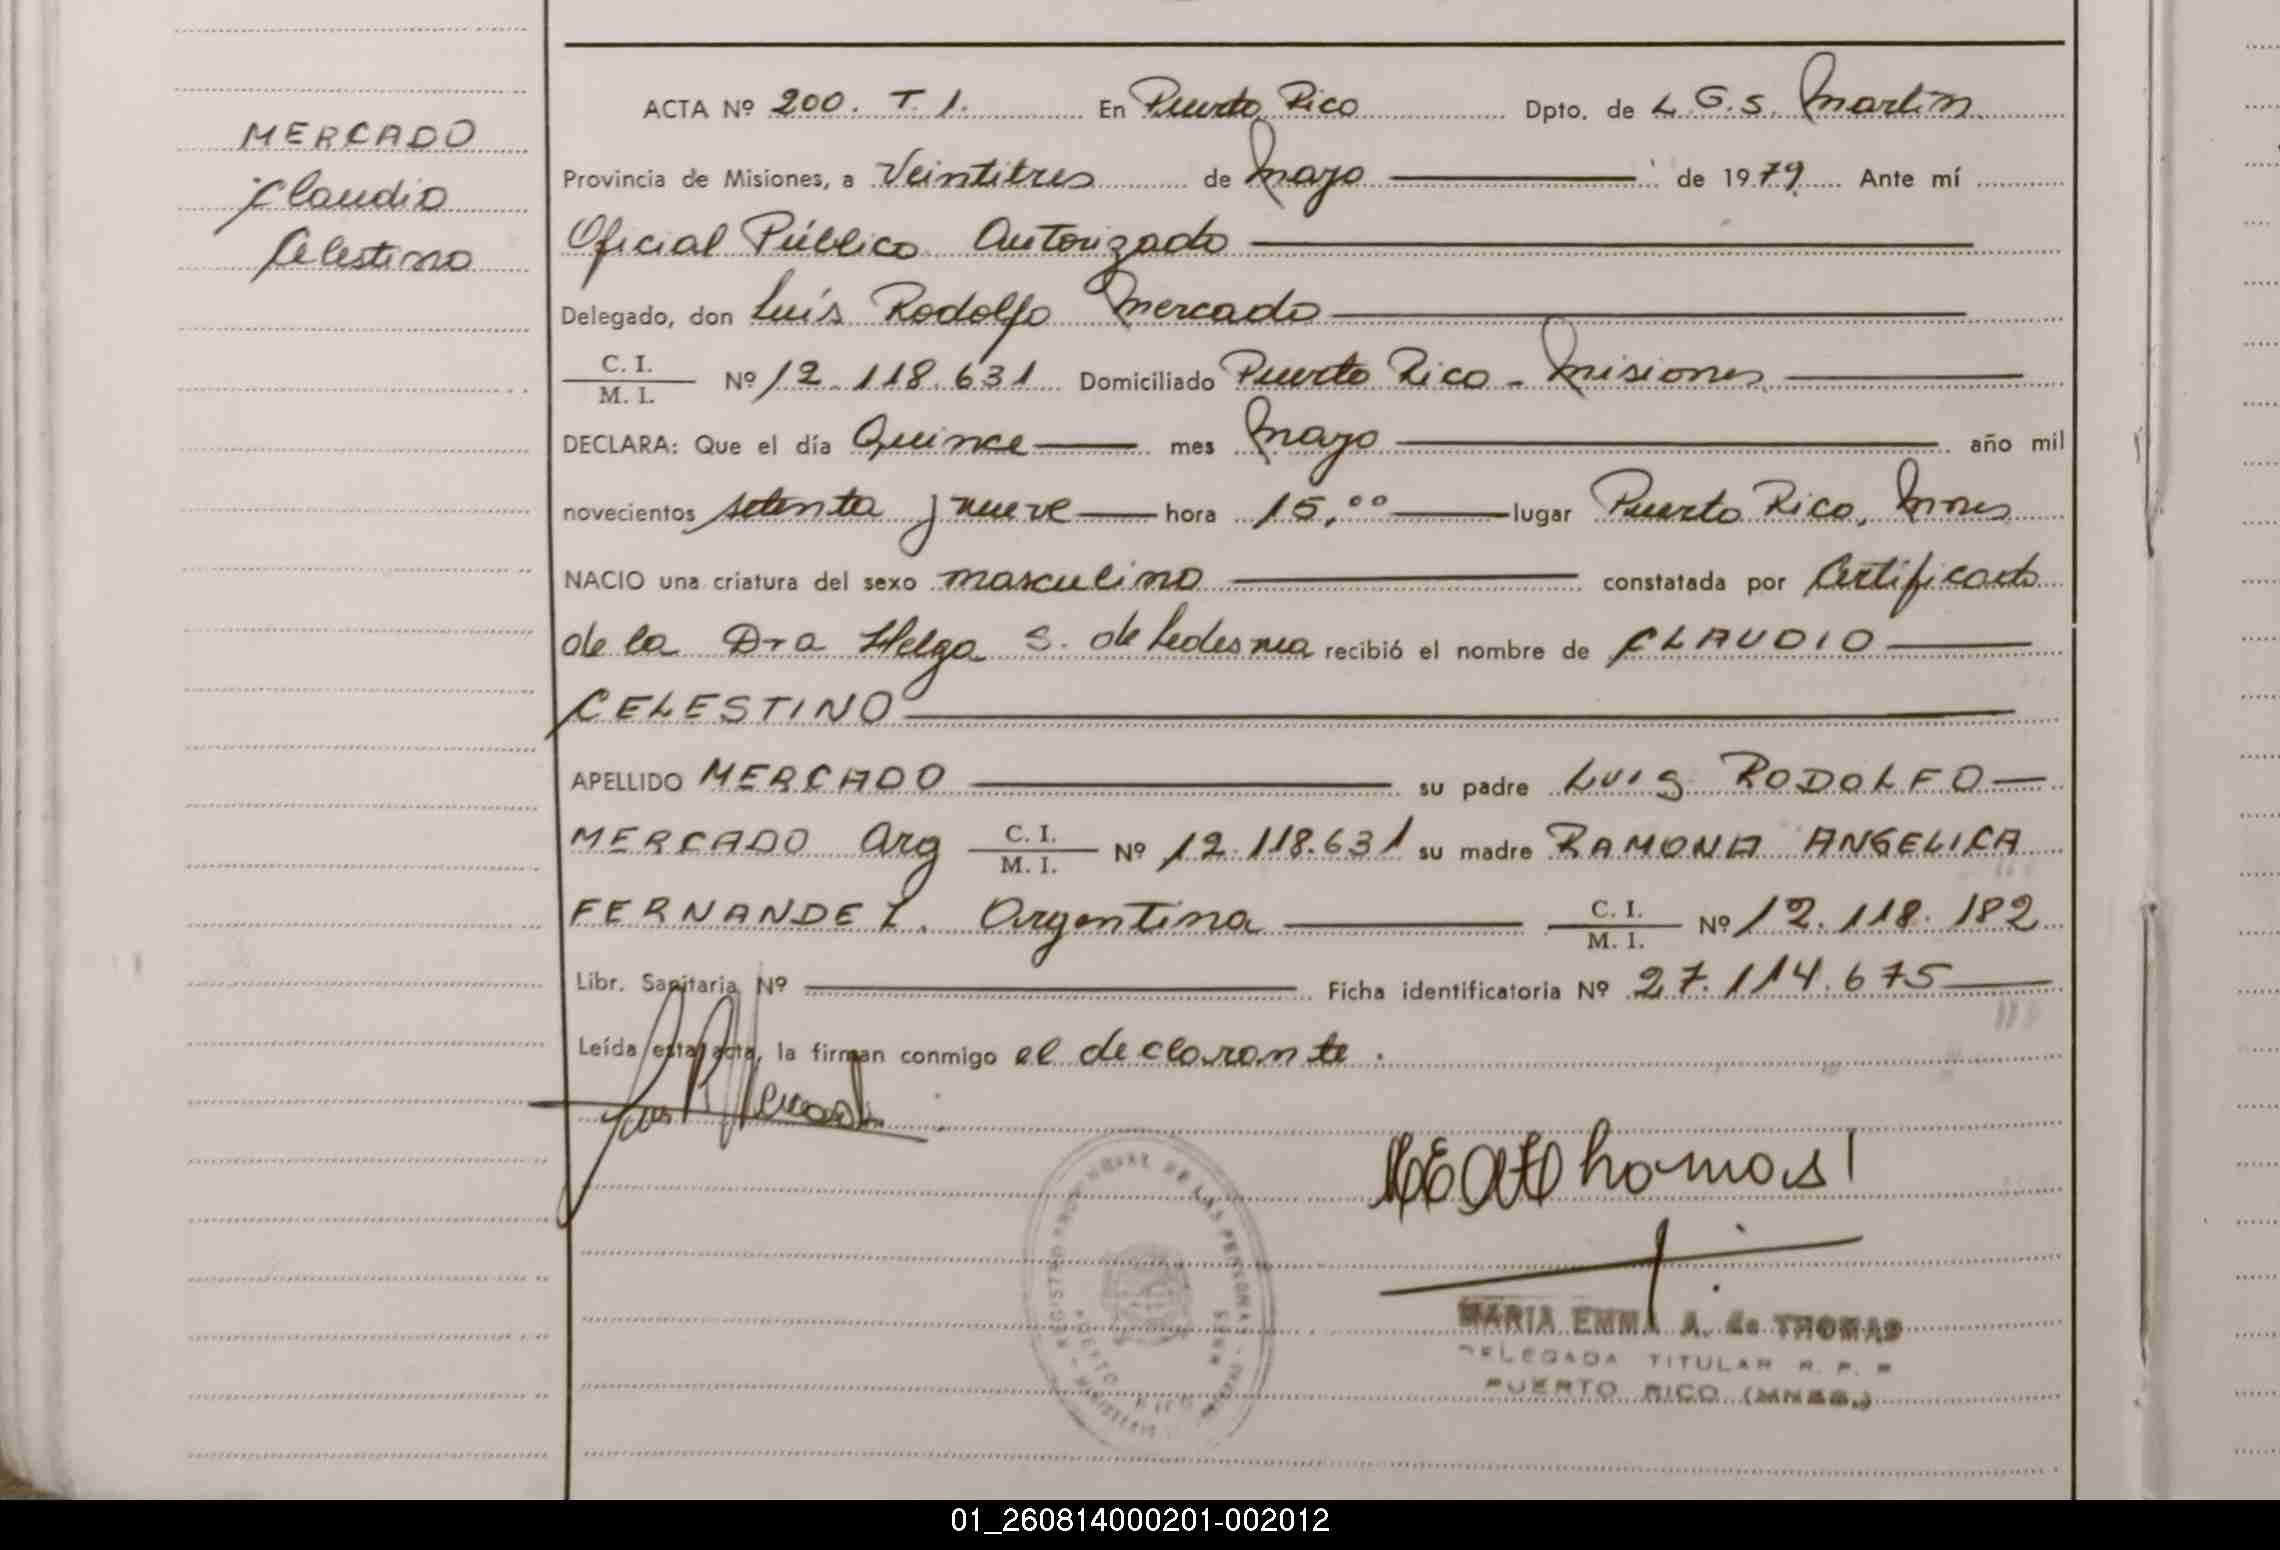 MERCADO
Claudio
Celestino
ACTA Nº 200. T. 1. En Puerto Rico Dpto. de L.G.S. Martín
Provincia de Misiones, a Veintitres de Mayo de 1979. Ante mí
Oficial Público Autorizado
Delegado, don Luís Rodolfo Mercado
C. I.
M. I. Nº 12.118.631 Domiciliado Puerto Rico - Misiones
DECLARA: Que el día Quince mes Mayo año mil
novecientos setenta y nueve hora 15,00 lugar Puerto Rico, Mnes
NACIO una criatura del sexo masculino constatada por Certificado
de la Dra Helga S. de Ledesma recibió el nombre de CLAUDIO
CELESTINO
APELLIDO MERCADO su padre LUIS RODOLFO
MERCADO Arg C. I. M. I. Nº 12.118.631 su madre RAMONA ANGELICA
FERNANDEZ. Argentina C. I. M. I. Nº 12.118.182
Libr. Sanitaria Nº Ficha identificatoria Nº 27.114.675
Leída esta acta, la firman conmigo el declarante.
MARIA EMMA A. de THOMAS
DELEGADA TITULAR R. P. P
PUERTO RICO (MNES.)
01_260814000201-002012